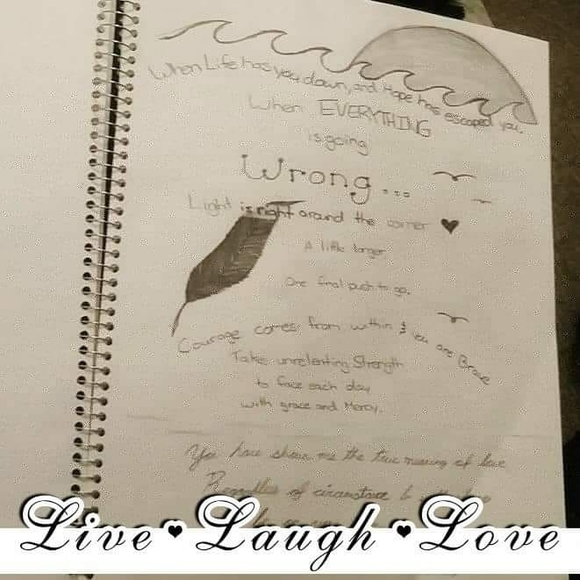 When Life has you down, and Hope has escaped you.
When EVERYTHING
is going
Wrong...
Light is right around the corner ♥
A little longer
One final push to go.
Courage comes from within & you are Brave
Takes unrelenting Strength
to face each day
with grace and Mercy.
You have shown me the true meaning of love
Regardless of circumstance
Live ♥ Laugh ♥ Love